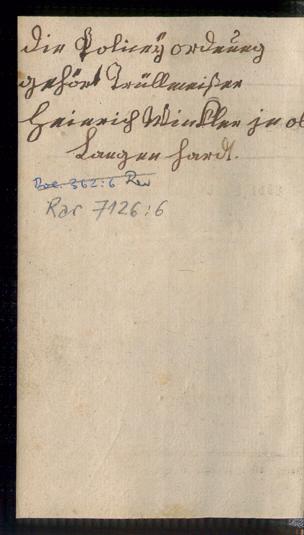 die Policeÿ ordnung
gehört Trüllmeister
Heinrich Winkler in ob
Langenhardt.
Rar 7126:6